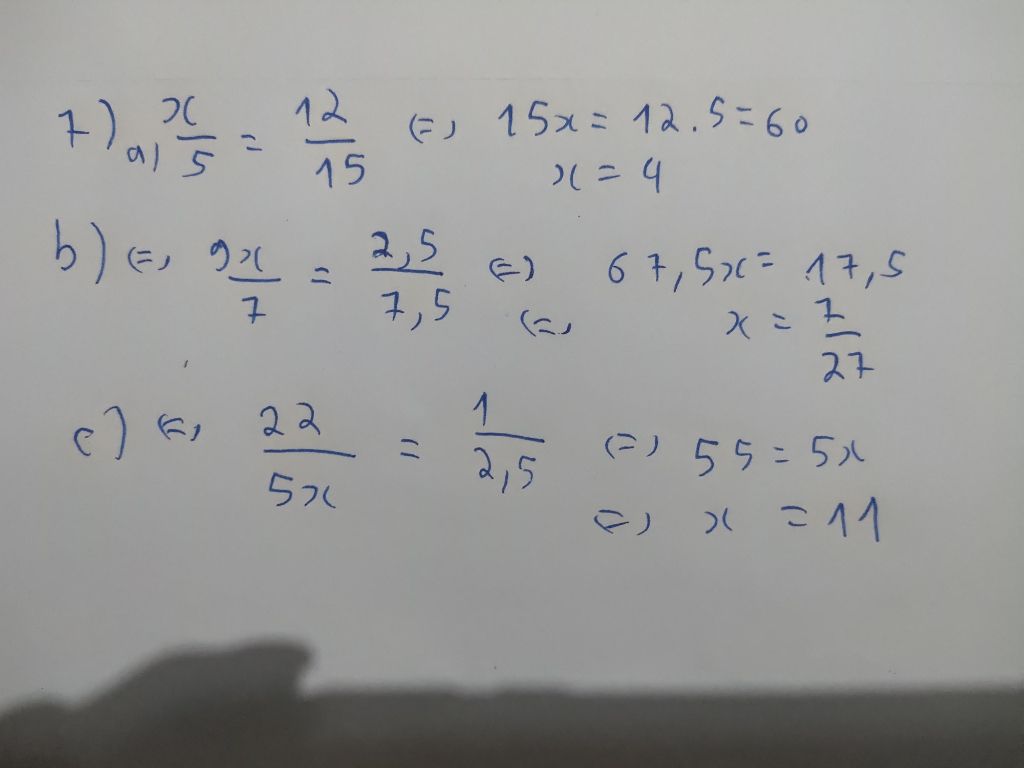 7) a) x/5 = 12/15 <=> 15x = 12.5 = 60
x = 4
b) <=> 9x/7 = 2,5/7,5 <=> 67,5x = 17,5
<=> x = 7/27
c) <=> 22/5x = 1/2,5 <=> 55 = 5x
<=> x = 11